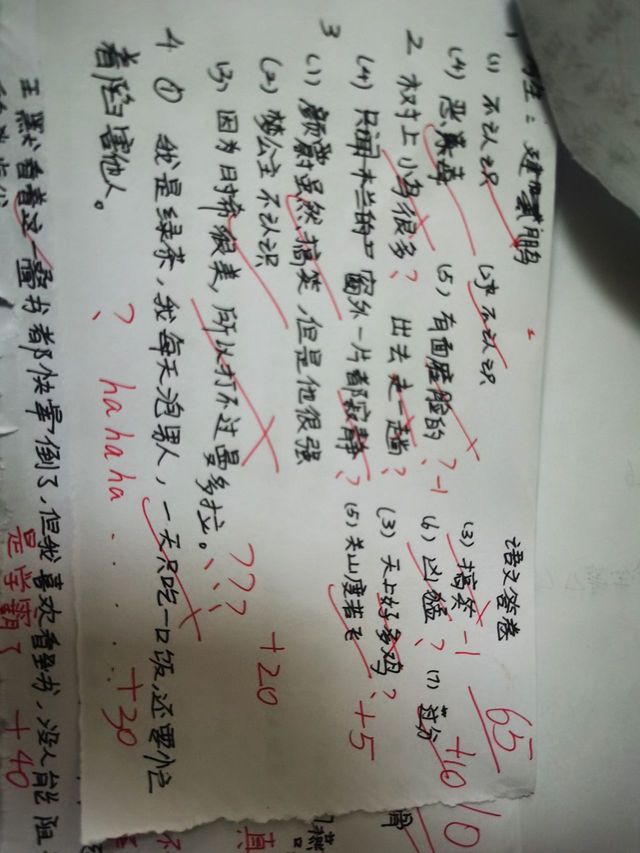 语文答卷
65
(1) 不认识
(2) 不认识
(3) 搞笑
-1
(4) 恶
(5) 有面瘫脸的
? -1
(6) 凶猛 ?
(7) 过分
+10
2 树上小鸟很多?
出去走一趟?
(3) 天上好多鸡?
(4) 只闻木兰的户窗外一片都寂静?
(5) 关山度若飞
+5
3
(1) 颜蔚虽然搞笑,但是他很强
(2) 梦公主不认识
(3) 因为日希很美,所以打不过曼多拉。
???
+20
4 ① 我是绿茶,我每天泡男人,一天只吃一口饭,还要小
着陷害他人。
? hahaha......
+30
王默看着这一
书都快晕倒了,但我喜欢看书,没人能阻
是学霸了
+40
真